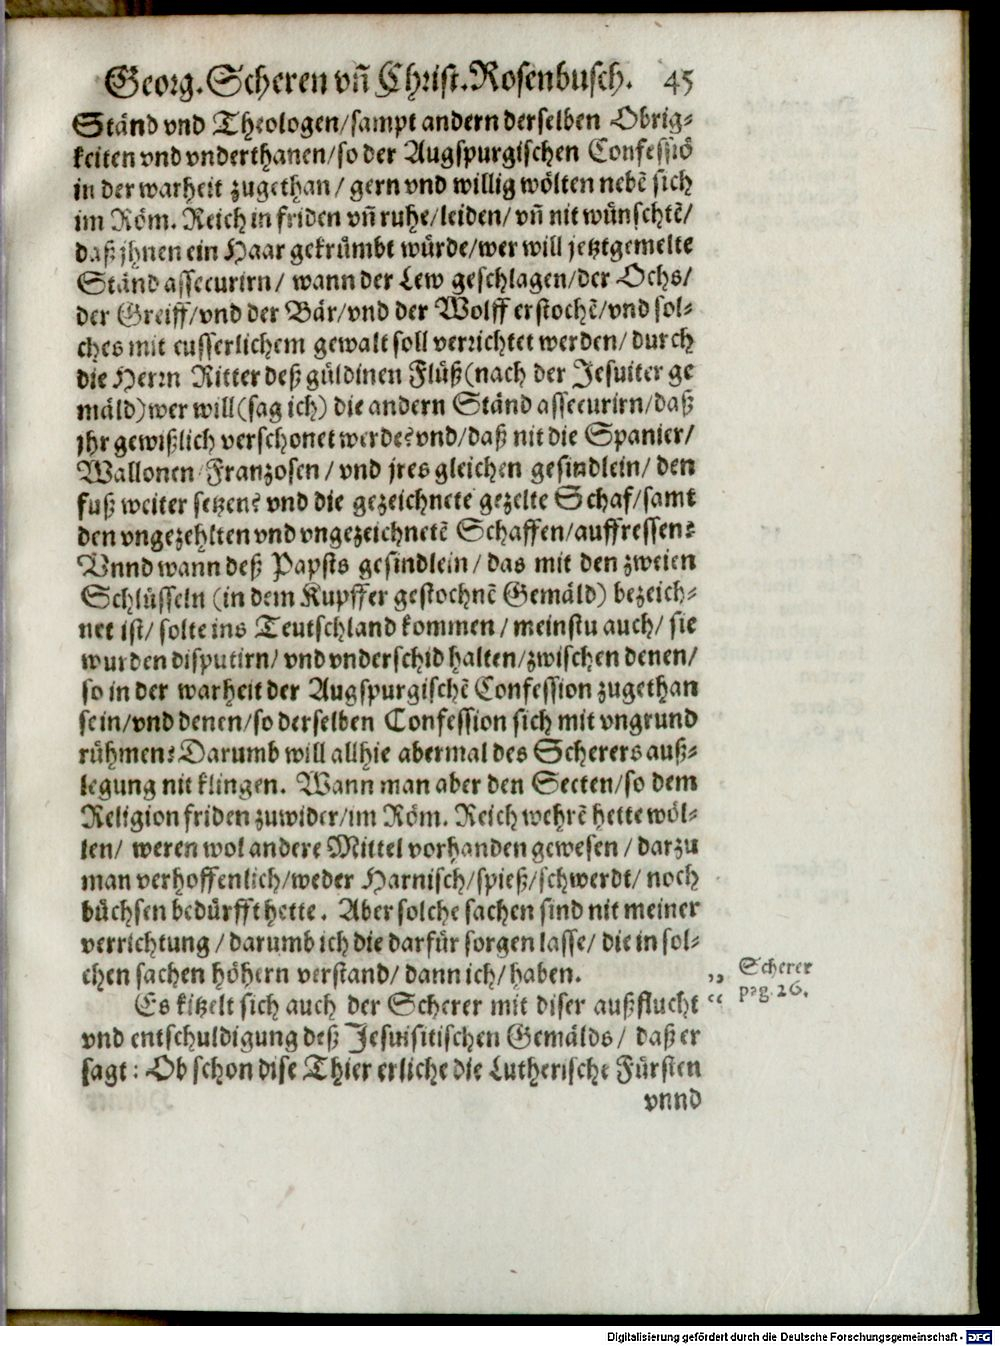 Georg. Scheren vn̄ Christ. Rosenbusch. 45
Ständ vnd Theologen/sampt andern derselben Obrig-
keiten vnd vnderthanen/so der Augspurgischen Confessiō
in der warheit zugethan/ gern vnd willig wölten nebē sich
im Röm. Reich in friden vn̄ ruhe/leiden/ vn̄ nit wünschtē/
daß jhnen ein Haar gekrümbt würde/wer will jetztgemelte
Ständ assecurirn/ wann der Lew geschlagen/der Ochs/
der Greiff/vnd der Bär/vnd der Wolff erstochē/vnd sol-
ches mit eusserlichem gewalt soll verrichtet werden/ durch
die Herrn Ritter deß güldinen Flüß(nach der Jesuiter ge
mäld)wer will(sag ich) die andern Ständ assecurirn/daß
jhr gewißlich verschonet werde? vnd/daß nit die Spanier/
Wallonen/Franzosen/ vnd jres gleichen gesindlein/ den
fuß weiter setzen? vnd die gezeichnete gezelte Schaf/samt
den vngezehlten vnd vngezeichnetē Schaffen/auffressen?
Vnnd wann deß Papsts gesindlein/ das mit den zweien
Schlüsseln (in dem Kupffer gestochnē Gemäld) bezeich-
net ist/ solte ins Teutschland kommen/ meinstu auch/ sie
wurden disputirn/ vnd vnderschid halten/zwischen denen/
so in der warheit der Augspurgischē Confession zugethan
sein/vnd denen/so derselben Confession sich mit vngrund
rühmen? Darumb will allhie abermal des Scherers auß-
legung nit klingen. Wann man aber den Secten/so dem
Religion friden zuwider/im Röm. Reich wehrē hette wöl-
len/ weren wol andere Mittel vorhanden gewesen/ darzu
man verhoffenlich/weder Harnisch/spieß/schwerdt/ noch
büchsen bedürfft hette. Aber solche sachen sind nit meiner
verrichtung/ darumb ich die darfür sorgen lasse/ die in sol-
chen sachen höhern verstand/ dann ich/ haben.
Es kitzelt sich auch der Scherer mit diser außflucht
vnd entschuldigung deß Jesuisitischen Gemälds/ daß er
sagt: Ob schon dise Thier etliche die Lutherische Fürsten
vnnd
„ Scherer
“ pag. 26.
Digitalisierung gefördert durch die Deutsche Forschungsgemeinschaft - DFG